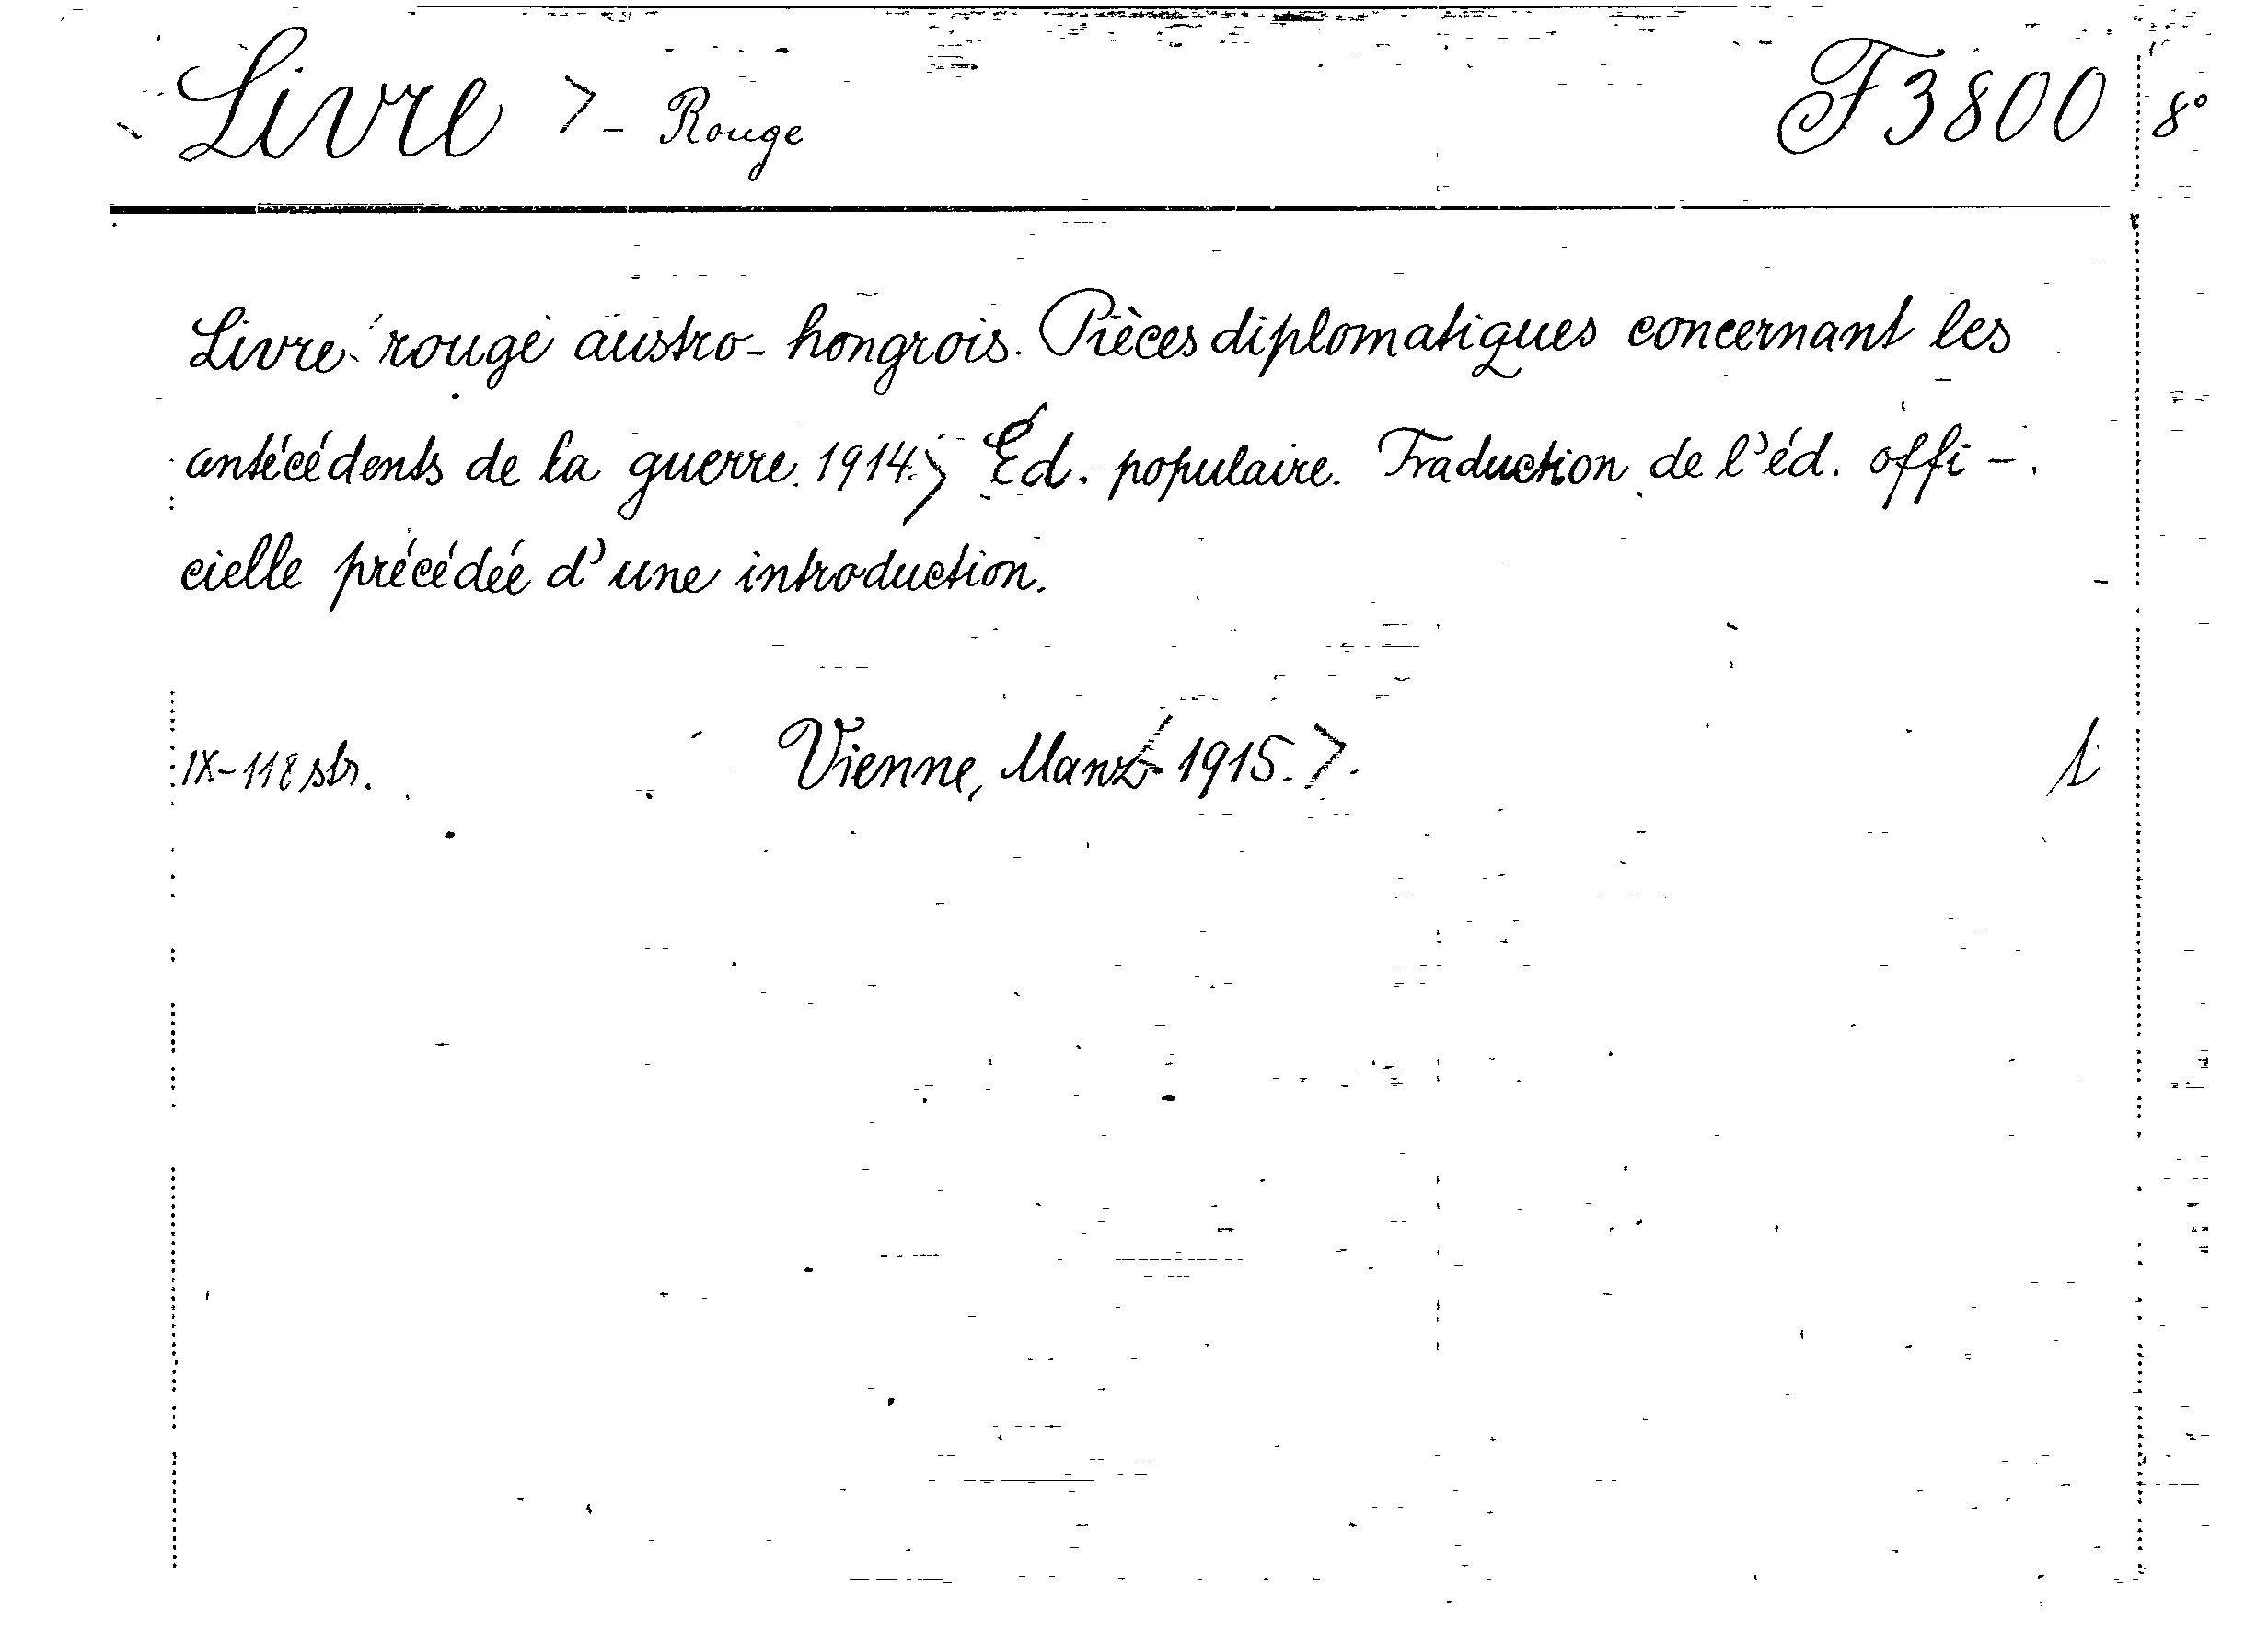 Livre > - Rouge F 3800 8°
Livre rouge austro-hongrois. Pièces diplomatiques concernant les
antécédents de la guerre 1914.> Éd. populaire. Traduction de l'éd. offi-
cielle précédée d'une introduction.
IX-118 str. Vienne, Manz 1915.>.